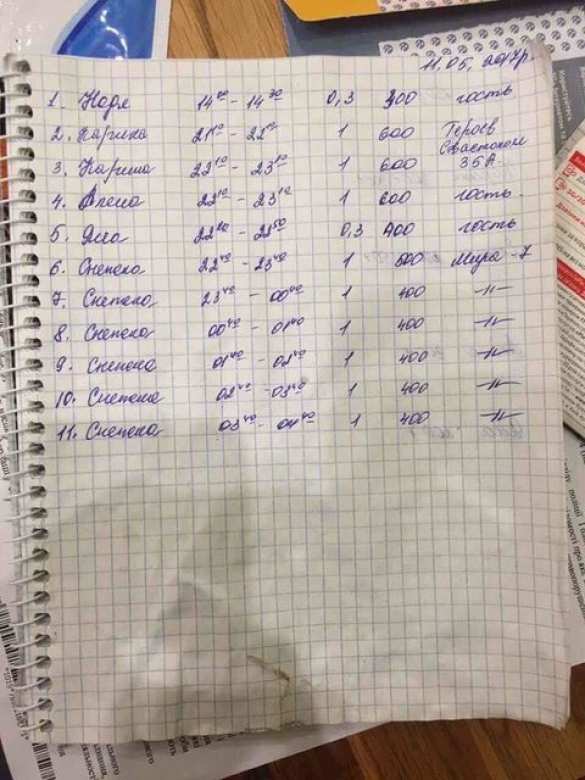 11.05.2017р.
1. Надя 14⁰⁰ - 14³⁰ 0,3 300 гость
2. Карина 21¹⁰ - 22¹⁰ 1 600 Героев Севастополя
3. Карина 22¹⁰ - 23¹⁰ 1 600 35А
4. Алена 22¹⁰ - 23¹⁰ 1 600 гость.
5. 22²⁰ - 0,3 400 гость
6. Снежена 22⁴⁰ - 23⁴⁰ 1 500 Мира - 7
7. Снежена 23⁴⁰ - 00⁴⁰ 1 400 -"-
8. Снежена 00⁴⁰ - 01⁴⁰ 1 400 -"-
9. Снежена 01⁴⁰ - 02⁴⁰ 1 400 -"-
10. Снежена 02⁴⁰ - 03⁴⁰ 1 400 -"-
11. Снежена 03⁴⁰ - 04⁴⁰ 1 400 -"-